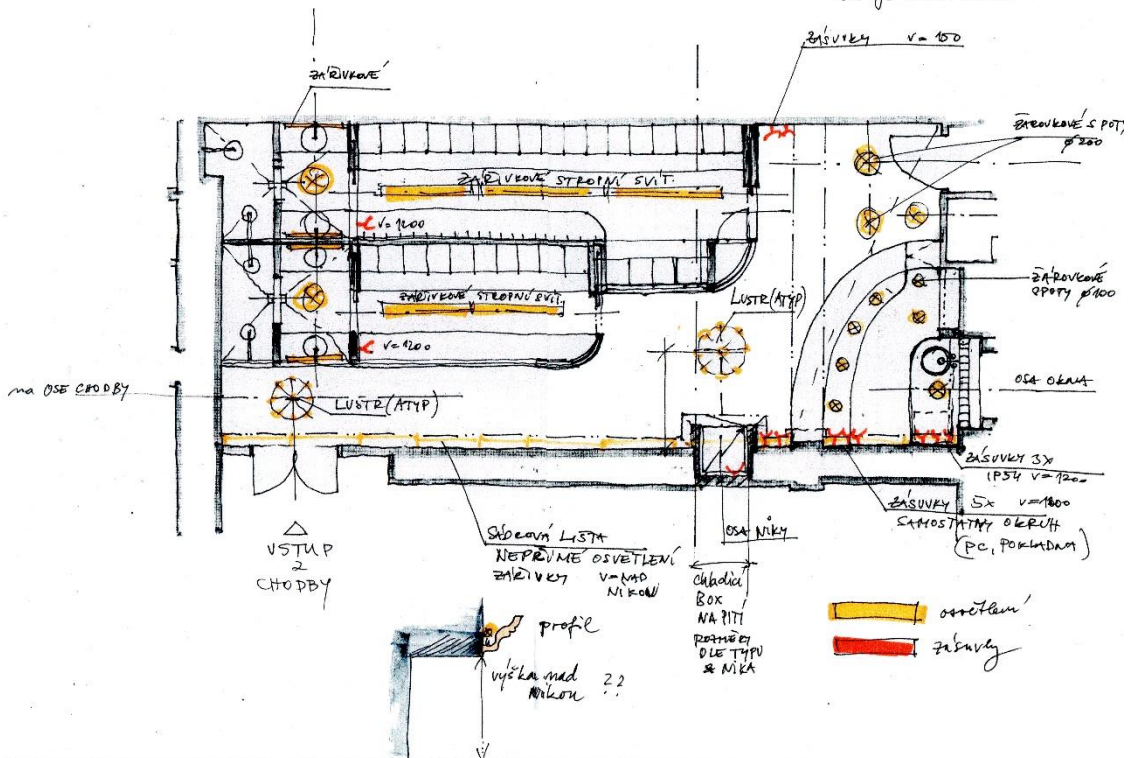 ZÁSUVKY v=150
ZÁŘIVKOVÉ
ŽÁROVKOVÉ SPOTY
ø200
ZÁŘIVKOVÉ STROPNÍ SVÍT.
v=1200
ŽÁROVKOVÉ
SPOTY ø100
ZÁŘIVKOVÉ STROPNÍ SVÍT.
LUSTR (ATYP)
v=1200
na OSE CHODBY
LUSTR (ATYP)
OSA OKNA
ZÁSUVKY 3x
IP54 v=1200
ZÁSUVKY 5x v=1200
SAMOSTATNÝ OKRUH
(PC, POKLADNA)
VSTUP
Z
CHODBY
SÁDROVÁ LIŠTA
NEPŘÍMÉ OSVĚTLENÍ
ZÁŘIVKY v=NAD
NIKOU
OSA NIKY
chladící
BOX
NA PITÍ
ROZMĚRY
DLE TYPU
& NIKA
osvětlení
zásuvky
profil
výška nad
nikou ??